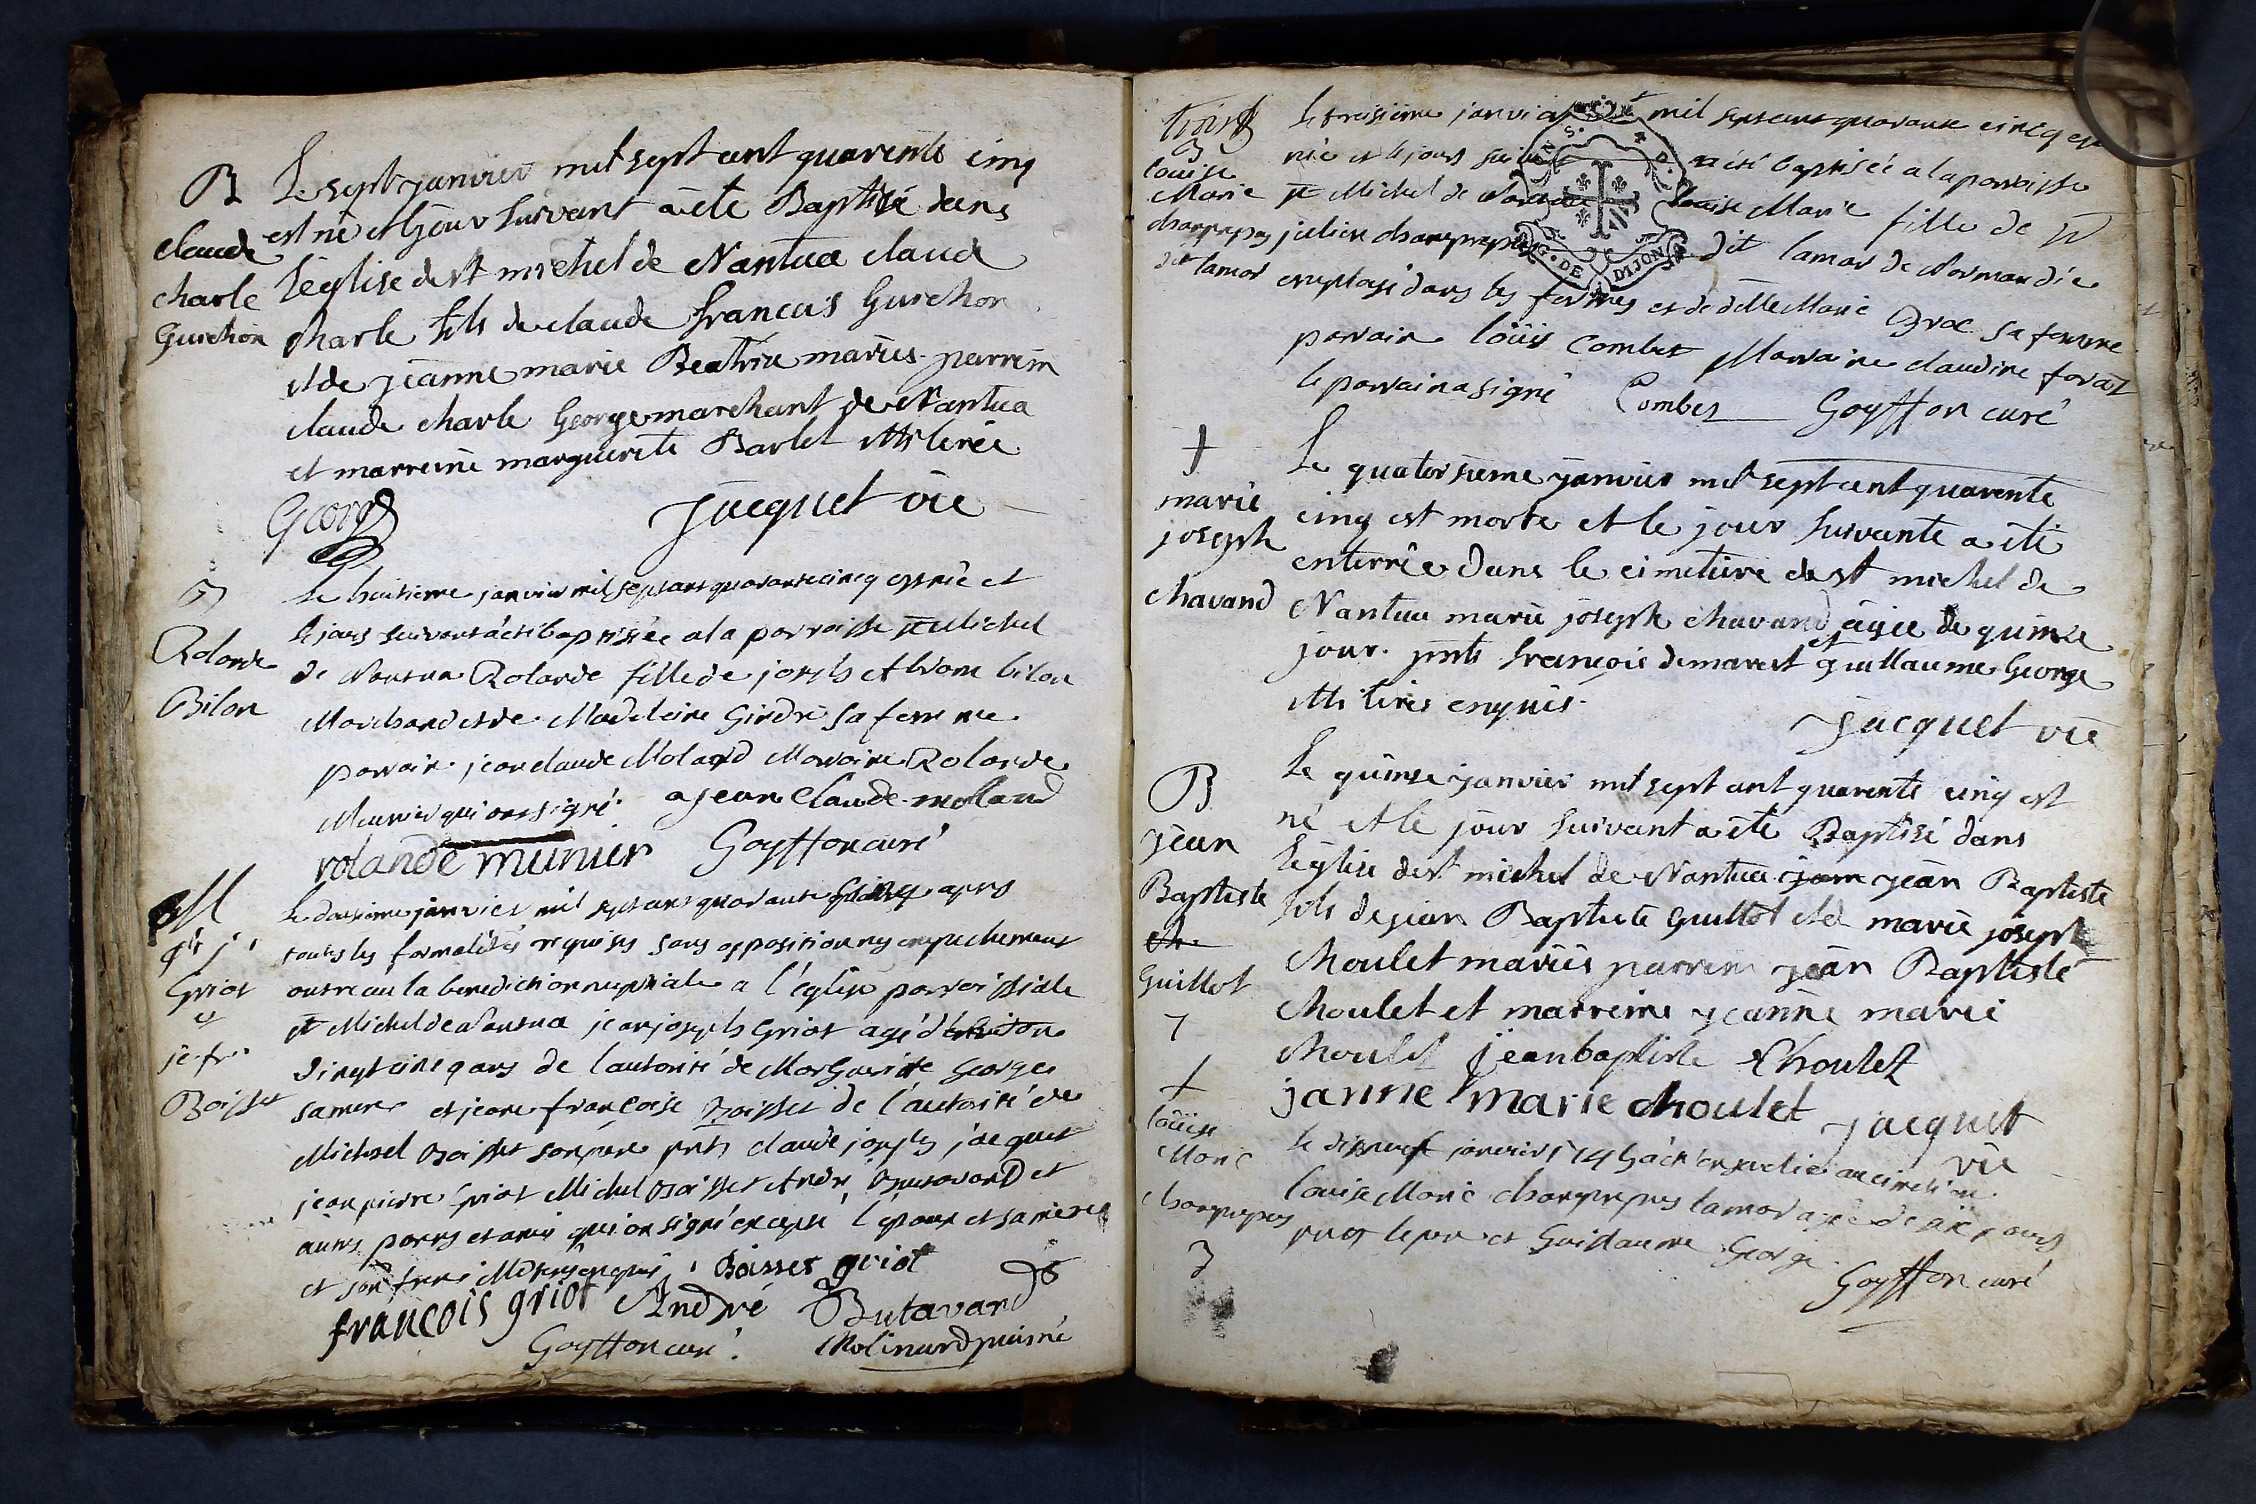 B
Claude
charle
Gurchon
Le sept janvier mil sept cent quarente cinq
est né et le jour suivant a été Baptisé dans
l'église de st michel de Nantua claude
charle fils de claude francois Gurchon
et de jeanne marie Beatrix mariés parrein
claude charle George marchant de Nantua
et marreine marguerite Barlet illiterée
George
Jacquet vic
B
Rolande
Bilon
Le huitieme janvier mil sept cent quarante cinq est née et
le jour suivant a été baptisée a la parroisse st Michel
de Nantua Rolande fille de joseph bilon
Marchand et de Madeleine Girdre sa femme
parrain jean claude Moland Marraine Rolande
Meunier qui ont signé. a jean Claude moland
rolande munier Goyffon curé
M
Griot
et
je. fr.
Boisset
Le douzieme janvier mil sept cent quarante cinq apres
toutes les formalités requises sans opposition ny empechement
ont receu la benediction nuptiale a l'église parroissiale
st Michel de Nantua jean joseph Griot agé d'environ
vingt cinq ans de l'autorité de Marguerite George
sa mere et jeane francoise Boisset de l'autorité de
Michel Boisset son pere pnts claude joseph jacquet
jean pierre Griot Michel Boisset André Butavand et
autres parens et amis qui on signé excepté l'epoux et sa mere
et son frere illiterés enquis. Boisset griot
françois griot André Butavand
Goyffon curé. Molinard puisné
B
louise
Marie
champrepus
dit lamor
Le treisieme janvier mil sept cent quarante cinq est
née et le jour suivant a été baptisée a la parroisse
st Michel de Nantua louise Marie fille de
julien champrepus dit lamor de Normandie
employé dans les fermes et de dlle Marie Broc sa femme
parrain loüis Combet Marraine claudine forat
le parrain a signé Combet Goyffon curé
S. G. DE DIJON
†
marie
joseph
chavand
Le quatorsieme janvier mil sept cent quarente
cinq est morte et le jour suivante a été
enterrée dans le cimetiere de st michel de
Nantua marie joseph chavand agée de quinze
jour. pnts françois demarest et guillaume George
illiterés enquis.
Jacquet vic
B
jean
Baptiste
ch
Guillot
7
Le quinze janvier mil sept cent quarente cinq est
né et le jour suivant a été Baptisé dans
l'église de st michel de Nantua jean jean Baptiste
fils de jean Baptiste Guillot et de marie joseph
choulet mariés parrein jean Baptiste
choulet et marreine jeanne marie
choulet jean baptiste Choulet
janne marie choulet Jacquet
vic
†
loüise
Marie
champrepus
3
Le dixneuf janvier 1745 a été ensevelie au cimetiere
louise Marie champrepus lamor agée de six jours
pnts le pere et Guillaume George.
Goyffon curé